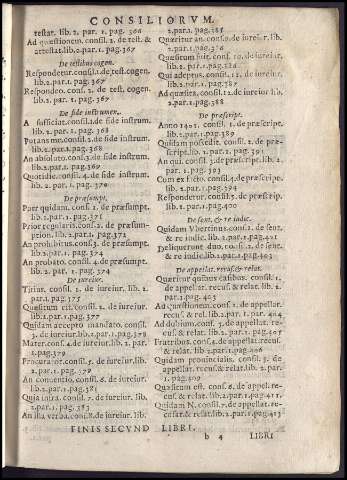 CONSILIORVM.
testat. lib. 2. par. 1. pag. 366
Ad quæstionem. consil. 2. de test. &
attestat. lib. 2. par. 1. pag. 367
De testibus cogen.
Respondetur. consil. 1. de test. cogen.
lib. 2. par. 1. pag. 367
Respondeo. consil. 2. de test. cogen.
lib. 2. par. 1. pag. 367
De fide instrumen.
A sufficiat. consil. 1. de fide instrum.
lib. 2. par. 1. pag. 368
consil. 2. de fide instrum.
lib. 2. par. 1. pag. 368
An absoluto. consil. 3. de fide instrum.
lib. 2. par. 1. pag. 369
Quotidie. consil. 4. de fide instrum.
lib. 2. par. 1. pag. 370
De præsumpt.
Puer quidam. consil. 1. de præsumpt.
lib. 2. par. 1. pag. 371
Prior regularis. consil. 2. de præsum-
ption. lib. 2. par. 1. pag. 371
An prohibitus. consil. 3. de præsumpt.
lib. 2. par. 1. pag. 374
An probato. consil. 4. de præsumpt.
lib. 2. par. 1. pag. 374
De iureiur.
Titius. consil. 1. de iureiur. lib. 2.
par. 1. pag. 375
Quæsitum est. consil. 2. de iureiur.
lib. 2. par. 1. pag. 377
Quidam accepto mandato. consil.
3. de iureiur. lib. 2. par. 1. pag. 378
Mater. consil. 4. de iureiur. lib. 2. par.
1. pag. 379
Procurator. consil. 5. de iureiur. lib.
2. par. 1. pag. 379
An conuentio. consil. 6. de iureiur. lib.
2. par. 1. pag. 381
Quia infra. consil. 7. de iureiur. lib.
2. par. 1. pag. 383
An illa verba. consil. 8. de iureiur. lib.
2. par. 1. pag. 385
Quæritur an. consil. 9. de iureiur. lib.
2. par. 1. pag. 386
Quæsitum fuit. consil. 10. de iureiur.
lib. 2. par. 1. pag. 386
Qui adeptus. consil. 11. de iureiur. lib.
2. par. 1. pag. 387
Ad quæsita. consil. 12. de iureiur. lib.
2. par. 1. pag. 388
De præscript.
Anno consil. 1. de præscript.
lib. 2. par. 1. pag. 389
Quidam possedit. consil. 2. de præ-
script. lib. 2. par. 1. pag. 391
An qui. consil. 3. de præscript. lib. 2.
par. 1. pag. 393
Cum ex facto. consil. 4. de præscript.
lib. 2. par. 1. pag. 394
Respondetur. consil. 5. de præscript.
lib. 2. par. 1. pag. 400
De sent. & re iudic.
Quidam Vbertinus. consil. 1. de sent.
& re iudic. lib. 2. par. 1. pag. 401
Deliquerunt duo. consil. 2. de sent.
& re iudic. lib. 2. par. 1. pag. 403
De appellat. recus. & relat.
Quæritur quibus casibus. consil. 1.
de appellat. recus. & relat. lib. 2.
par. 1. pag. 403
Ad quæstionem. consil. 2. de appellat.
recus. & relat. lib. 2. par. 1. pag. 404
Ad dubium. consil. 3. de appellat. re-
cus. & relat. lib. 2. par. 1. pag. 405
Fratribus. consil. 4. de appellat. recus.
& relat. lib. 2. par. 1. pag. 406
Quidam prouincialis. consil. 5. de
appellat. recus. & relat. lib. 2. par.
1. pag. 409
Quæsitum est. consil. 6. de appel. re-
cus. & relat. lib. 2. par. 1. pag. 411
Quidam N. consil. 7. de appellat. re-
cusat. & relat. lib. 2. par. 1. pag. 413
FINIS SECVND LIBRI.
b 4 LIBRI